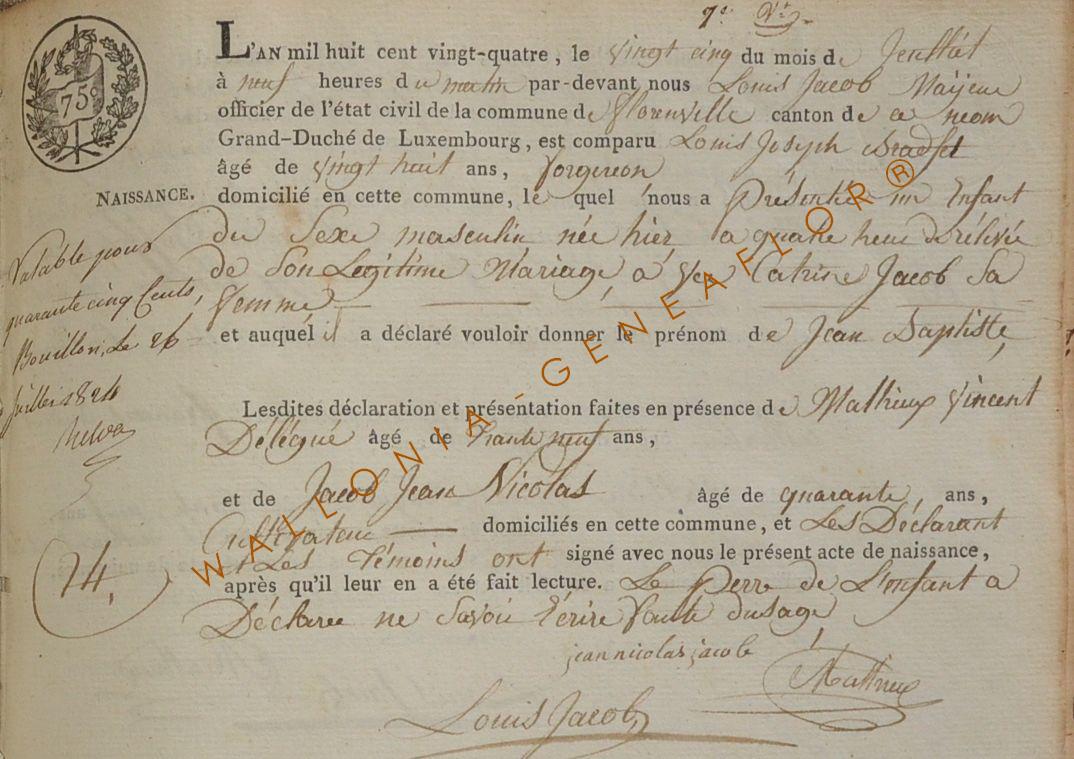 7e Vt
75c
L'AN mil huit cent vingt-quatre, le vingt cinq du mois de Jeuillet
à neuf heures du matin par-devant nous Louis Jacob Mayeur
officier de l'état civil de la commune de florenville canton de ce neom
Grand-Duché de Luxembourg, est comparu Louis Joseph
âgé de vingt huit ans, forgeron
NAISSANCE.
domicilié en cette commune, le quel nous a Présenté un Enfant
du Sexe masculin née hier a quatre heur de rélivée
de Son Legitime Mariage, a vec Catrine Jacob Sa
femme
et auquel il a déclaré vouloir donner le prénom de Jean Baptiste,
Valable pour
quarante cinq Cents,
Bouillon, Le 26
Juillet 1824
Lesdites déclaration et présentation faites en présence de Mathieux Vincent
Délégué âgé de trante neuf ans,
et de Jacob Jean Nicolas âgé de quarante, ans,
Cultivateur domiciliés en cette commune, et Les Déclarant
et Les Témoins ont signé avec nous le présent acte de naissance,
après qu'il leur en a été fait lecture. Le Perre de L'enfant a
Déclaree ne Savoir Ecrire faute dusage
24.
jean nicolas jacob
Mathieux
Louis Jacob
WALLONIA-GENEAFLOR®